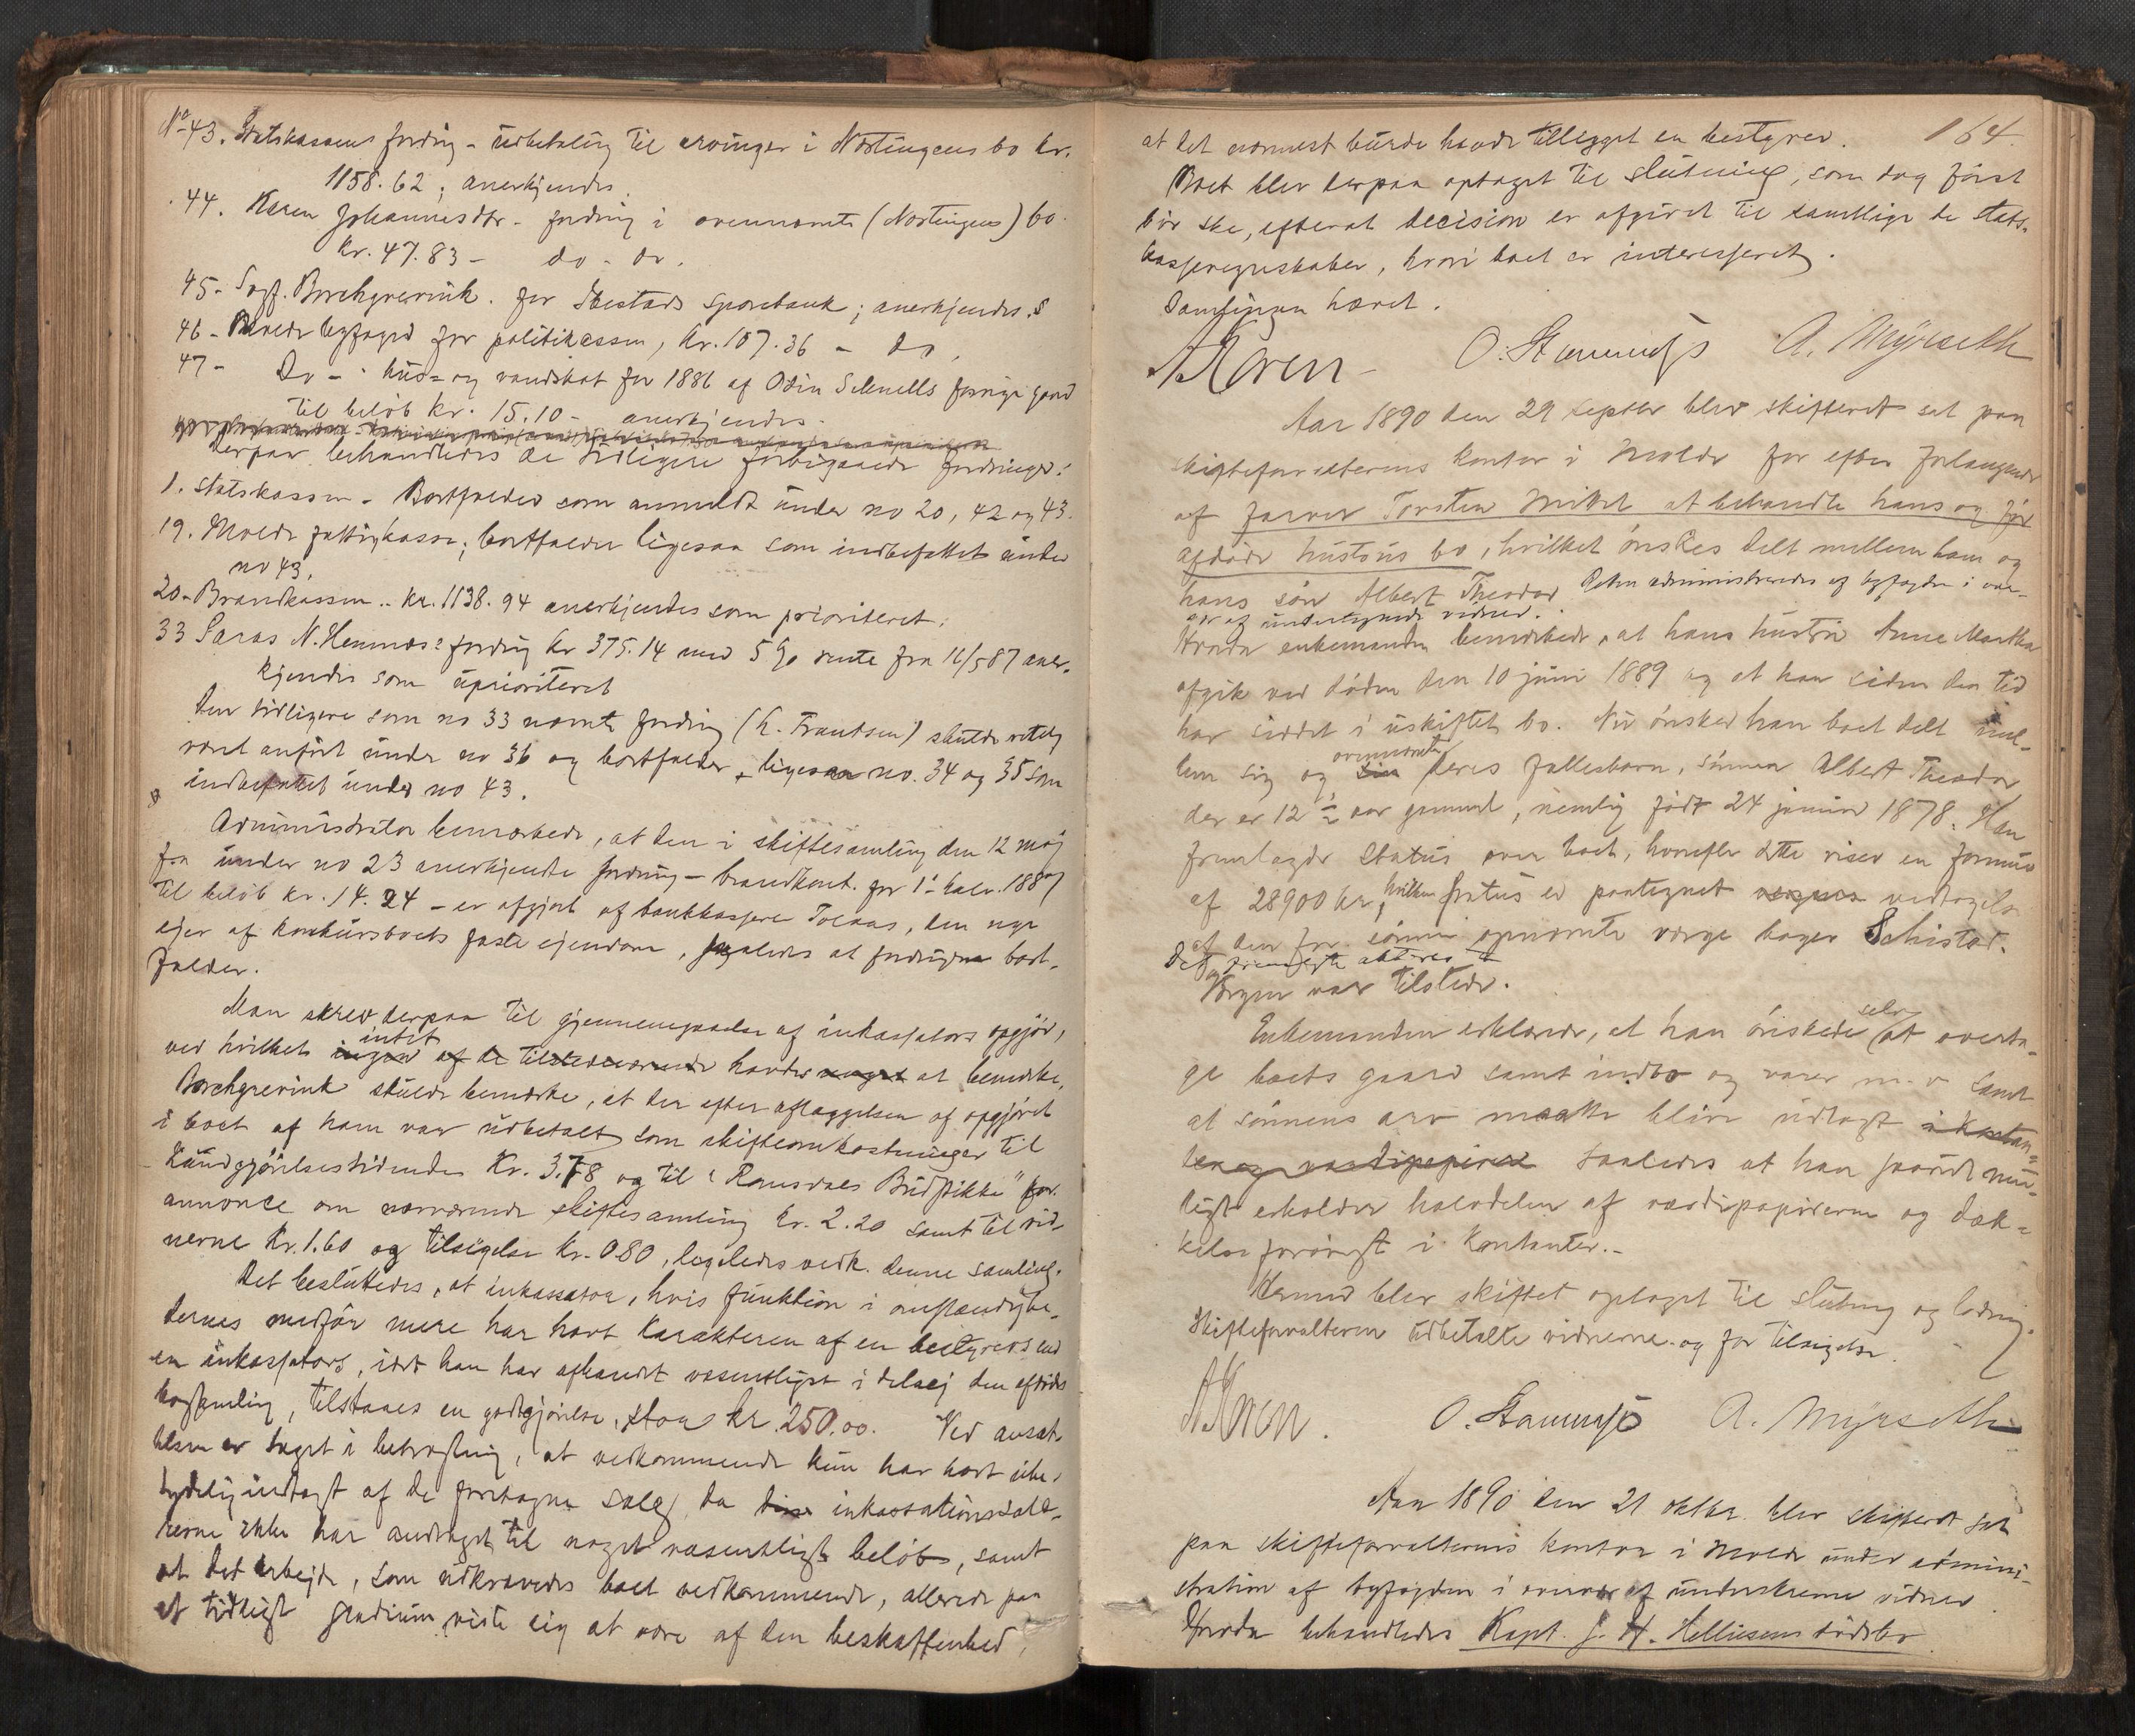 No 43. Statskassens fordring - udbetaling til arvinger i Nortingens bo kr.
1158.62; anerkjendes.
44. Karen Johannesdtr. fordring i ovennævnte (Nortingens) bo
kr. 47.83 - do - do.
45 - Sagf. Borchgrevink for sparebank; anerkjendes.
46 - Molde byfoged for politikassen, kr. 107.36 - do,
47 - Do - hus- og vandskat for 1886 af Odin Schnells forrige gaard
til beløb kr. 15.10 - anerkjendes.
Derpaa behandledes de tidligere forbigaaede fordringer:
1. Statskassen - Bortfalder som anmeldt under no 20, 42 og 43.
19. Molde fattigkasse; bortfalder ligesaa som indbefattet under
no 43.
20 - Brandkassen - kr. 1138.94 anerkjendes som prioriteret.
33 N. fordring kr 375.14 med 5 % rente fra 16/5 87 aner-
kjendes som uprioriteret
Den tidligere som no 33 nævnte fordring (H. Frantsen) skulde rettelig
været anført under no 36 og bortfalder, ligesaa no. 34 og 35 som
indbefattet under no 43.
Administrator bemærkede, at den i skiftesamling den 12 maj
f.a. under no 23 anerkjendte fordring - brandkont. for 1ste halv. 1887
til beløb kr. 14.24 - er afgjort af bankkasserer Tolaas, den nye
ejer af konkursboets faste ejendom, saaledes at fordringen bort-
falder.
Man skred derpaa til gjennemgaaelse af inkassators opgjør,
ved hvilket ingen intet af de tilstedeværende havdes noget at bemærke.
Borchgrevink skulde bemærke, at der efter aflæggelsen af opgjøret
i boet af ham var udbetalt som skifteomkostninger til
Kundgjørelsestidende Kr. 3.78 og til "Romsdals Budstikke" for
annonce om nærværende skiftesamling kr. 2.20 samt til vid-
nerne Kr. 1.60 og tilsigelse kr. 0.80, ligeledes vedk. denne samling.
Det besluttedes, at inkassator, hvis funktion i omstændighe-
dernes medfør mere har havt karakteren af en bestyrers end
en inkassators, idet han har afhandlet væsentligst i delvej den afdødes
bosamling, tilstaaes en godtgjørelse, stor kr. 250.00. Ved ansæt-
telsen er taget i betragtning, at vedkommende kun har havt ube-
tydelig indtægt af de foretagne salg, da disse inkassationssalæ-
rerne ikke har andraget til noget væsentligt beløb, samt
at det arbejde, som udkrævedes boet vedkommende, allerede paa
et tidligt stadium viste sig at være af den beskaffenhed,
164.
at det nærmest burde havde tillegget en bestyrer.
Boet blev derpaa optaget til slutning, som dog først
bør ske, efterat decision er afgivet til samtlige de stats-
kasseregnskaber, hvori boet er interesseret.
Samlingen hævet.
A Koren - O. Stammsø A. Myrseth
Aar 1890 den 29 septbr blev skifteret sat paa
skifteforvalterens kontor i Molde for efter forlangende
af farver Torsten at behandle hans og før
afdøde hustrus bo, hvilket ønskes delt mellem ham og
hans søn Albert Theodor. Retten administreredes af byfogden i over-
vær af undertegnede vidner.
Hvorda enkemanden bemærkede, at hans hustru Anne Martha
afgik ved døden den 10 juni 1889 og at han siden den tid
har siddet i uskiftet bo. Nu ønsker han boet delt mel-
lem sig og sin ovennævnte deres fællesbarn, sønnen Albert Theodor
der er 12 ½ aar gammel, nemlig født 24 januar 1878. Han
fremlagde status over boet, hvorefter dette viser en formue
af 28900 kr, hvilken status er paategnet værges vedtagelse
af den for sønnen opnævnte værge bager Schistad.
Det fremlagte akteres
Værgen var tilstede.
Enkemanden erklærede, at han ønskede selv at overta-
ge boets gaard samt indbo og varer m. v. samt
at sønnens arv maatte blive udlagt i kontan-
ter og værdipapirer saaledes at han saavidt mu-
ligt erholder halvdelen af værdipapirerne og dæk-
kelse forøvrigt i kontanter. -
Hermed blev skiftet optaget til slutning og lodning.
Skifteforvalteren udbetalte vidnerne og for tilsigelse.
A Koren. O. Stammsø A. Myrseth
Aar 1890 den 21 oktbr. blev skifteret sat
paa skifteforvalterens kontor i Molde under admini-
stration af byfogden i overvær af underskrevne vidner
Hvorda behandledes Kapt. J. H. Helliesens dødsbo